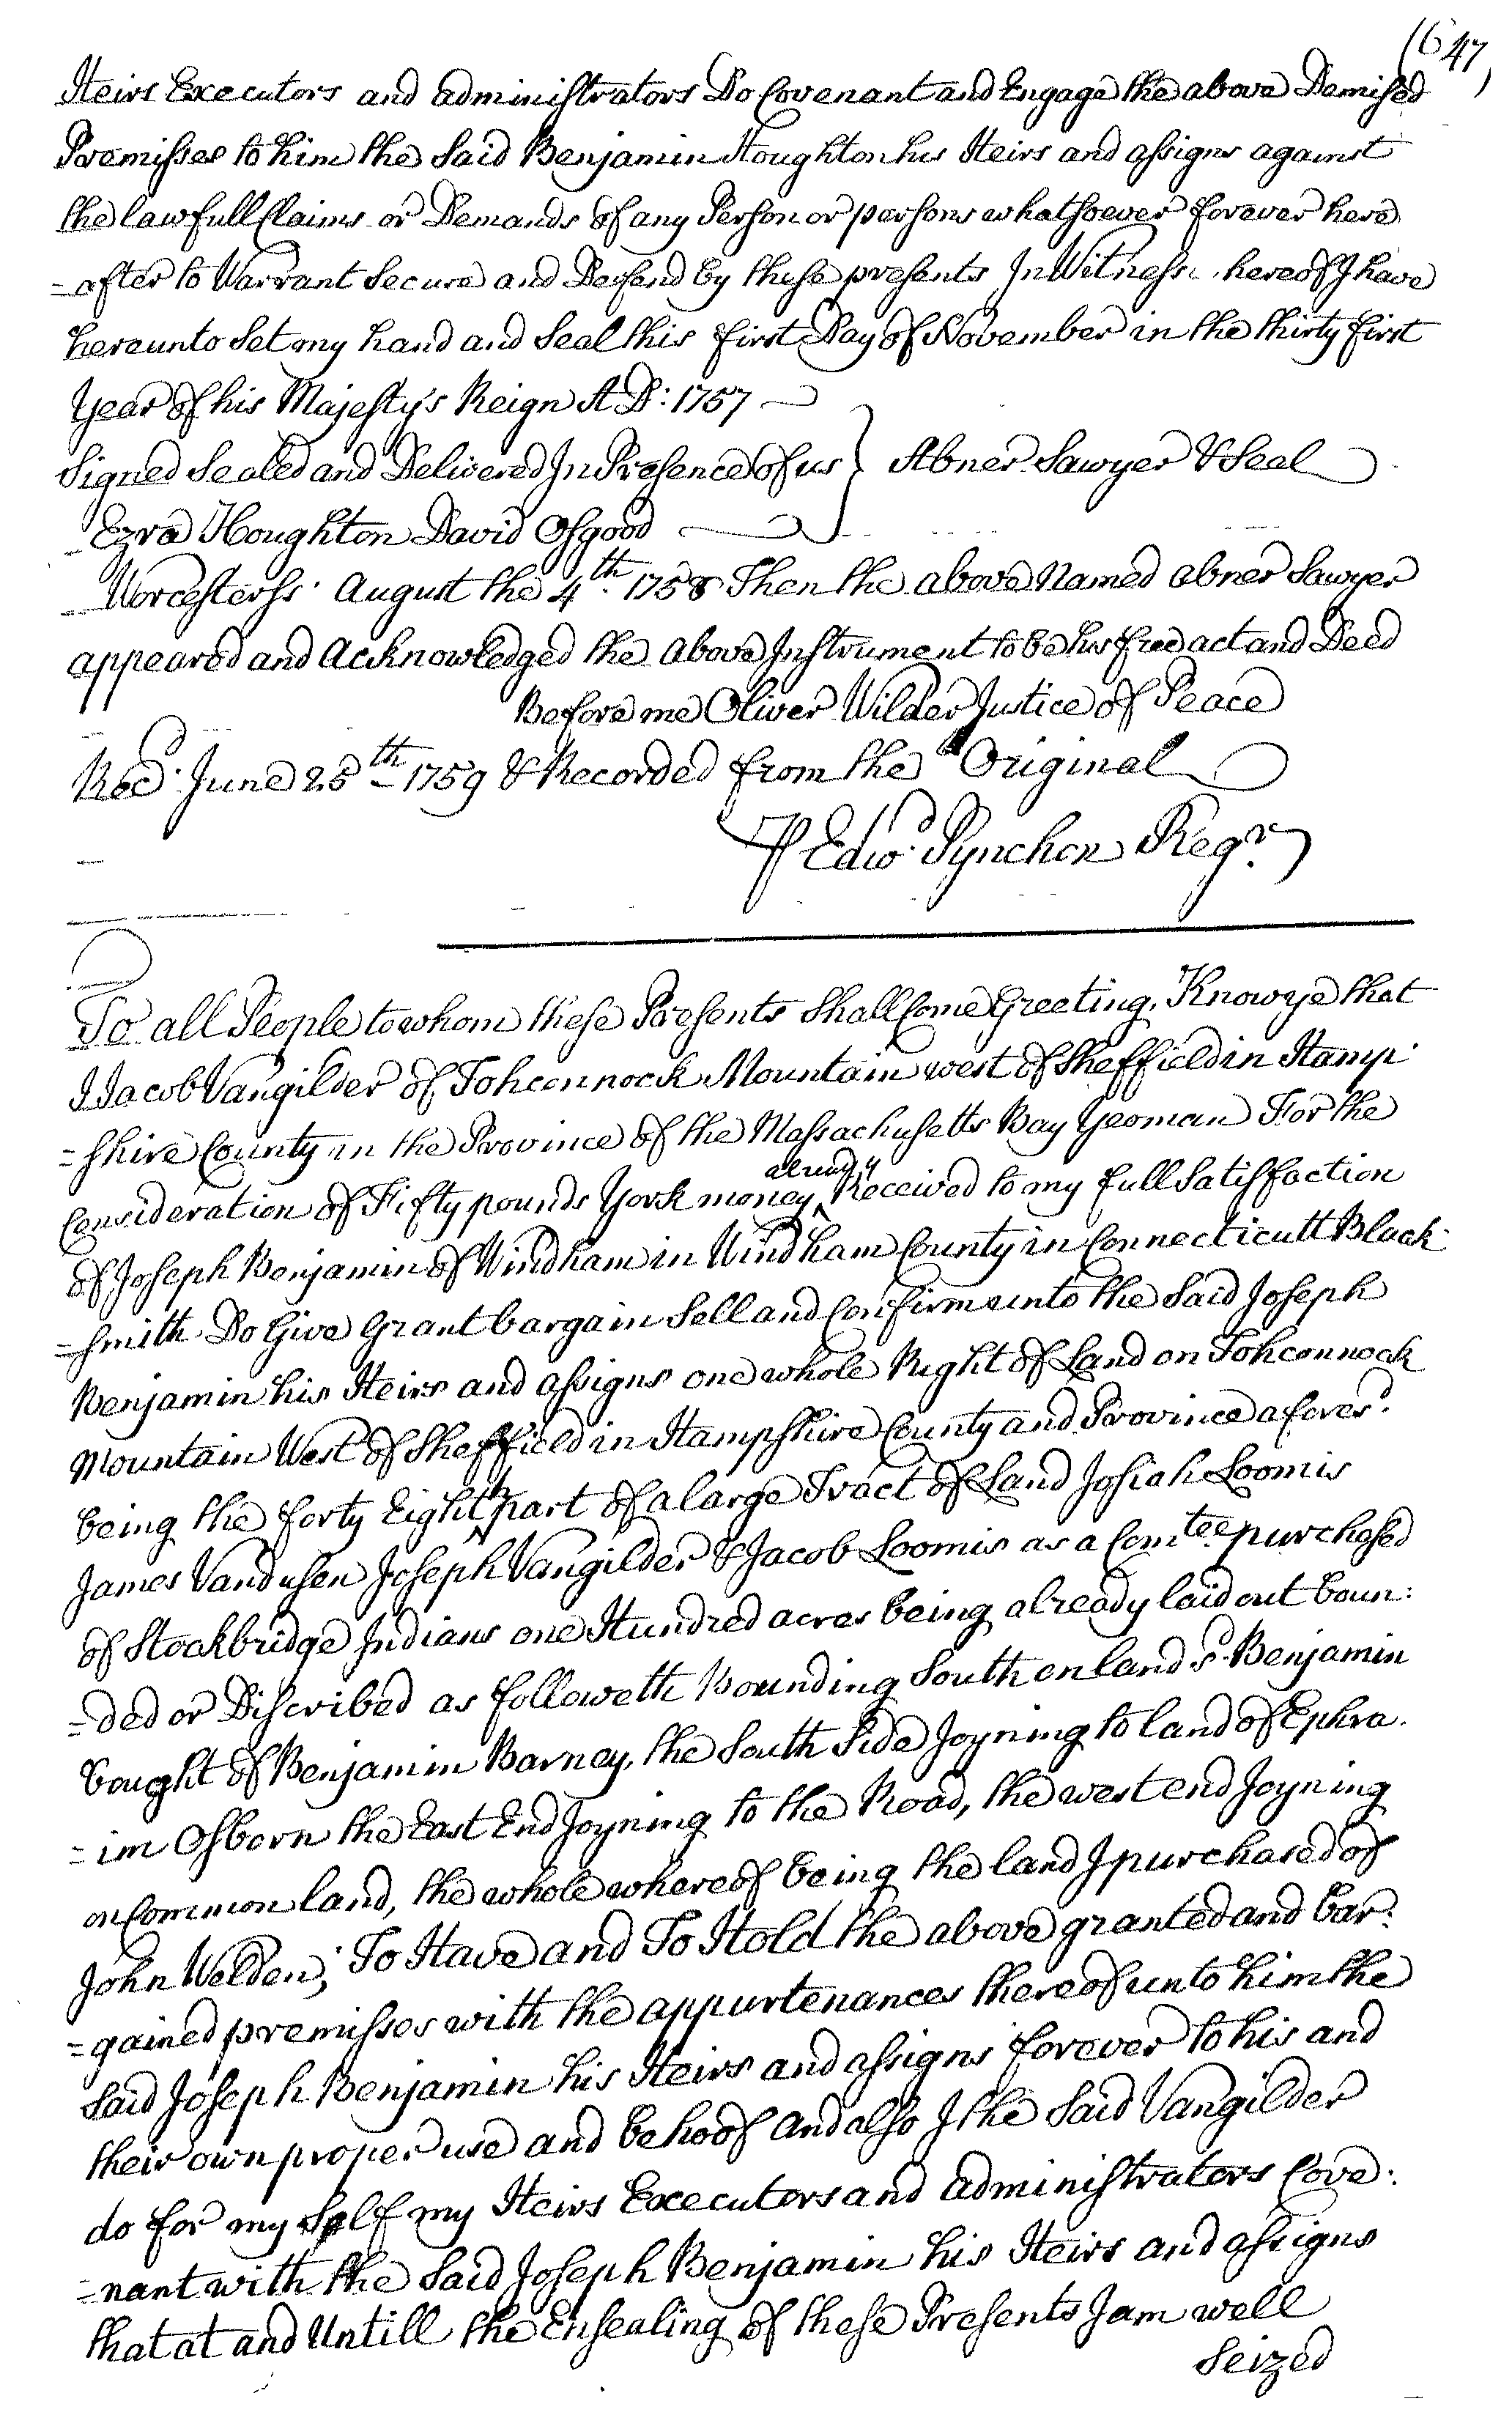 (647)
Heirs Executors and administrators Do Covenant and Engage the above Demised
Premisses to him the Said Benjamin Houghton his Heirs and assigns against
the lawfull Claims or Demands of any Person or persons whatsoever forever here
=after to Warrant Secure and Defend by these presents In Witness hereof I have
hereunto Set my hand and Seal this first Day of November in the thirty first
Year of his Majesty's Reign A D: 1757
Signed Sealed and Delivered In Presence of us } Abner Sawyer & Seal
Ezra Houghton David Osgood
Worcester ss. August the 4th. 1758 Then the above Named Abner Sawyer
appeared and Acknowledged the above Instrument to be his free act and Deed
Before me Oliver Wilder Justice of Peace
Recd. June 25th 1759 & Recorded from the Original
P Edwd. Pynchon Regr.
To all People to whom these Presents Shall Come Greeting, Know ye that
I Jacob Vangilder of Tohconnock Mountain west of Sheffield in Hamp
=shire County in the Province of the Massachusetts Bay Yeoman For the
Consideration of Fifty pounds York money already Received to my full Satisfaction
of Joseph Benjamin of Windham in Windham County in Connecticutt Black
=smith Do Give Grant bargain Sell and Confirm unto the Said Joseph
Benjamin his Heirs and assigns one whole Right of Land on Tohconnock
Mountain West of Sheffield in Hampshire County and Province aforesd.
being the forty Eighth part of a large Tract of Land Josiah Loomis
James Vandusen Joseph Vangilder & Jacob Loomis as a Comtee purchased
of Stockbridge Indians one Hundred acres being already laid out boun:
=ded or Discribed as followeth Bounding South on land sd. Benjamin
bought of Benjamin Barney, the South Side Joyning to land of Ephra
=im Osborn the East End Joyning to the Road, the west end Joyning
on Common land, the whole whereof being the land I purchased of
John Welden; To Have and To Hold the above granted and bar
=gained premisses with the appurtenances thereof unto him the
Said Joseph Benjamin his Heirs and assigns forever to his and
their own proper use and behoof and also I the Said Vangilder
do for my Self my Heirs Executors and administrators Cove:
=nant with the Said Joseph Benjamin his Heirs and assigns
that at and Untill the Ensealing of these Presents I am well
Seized